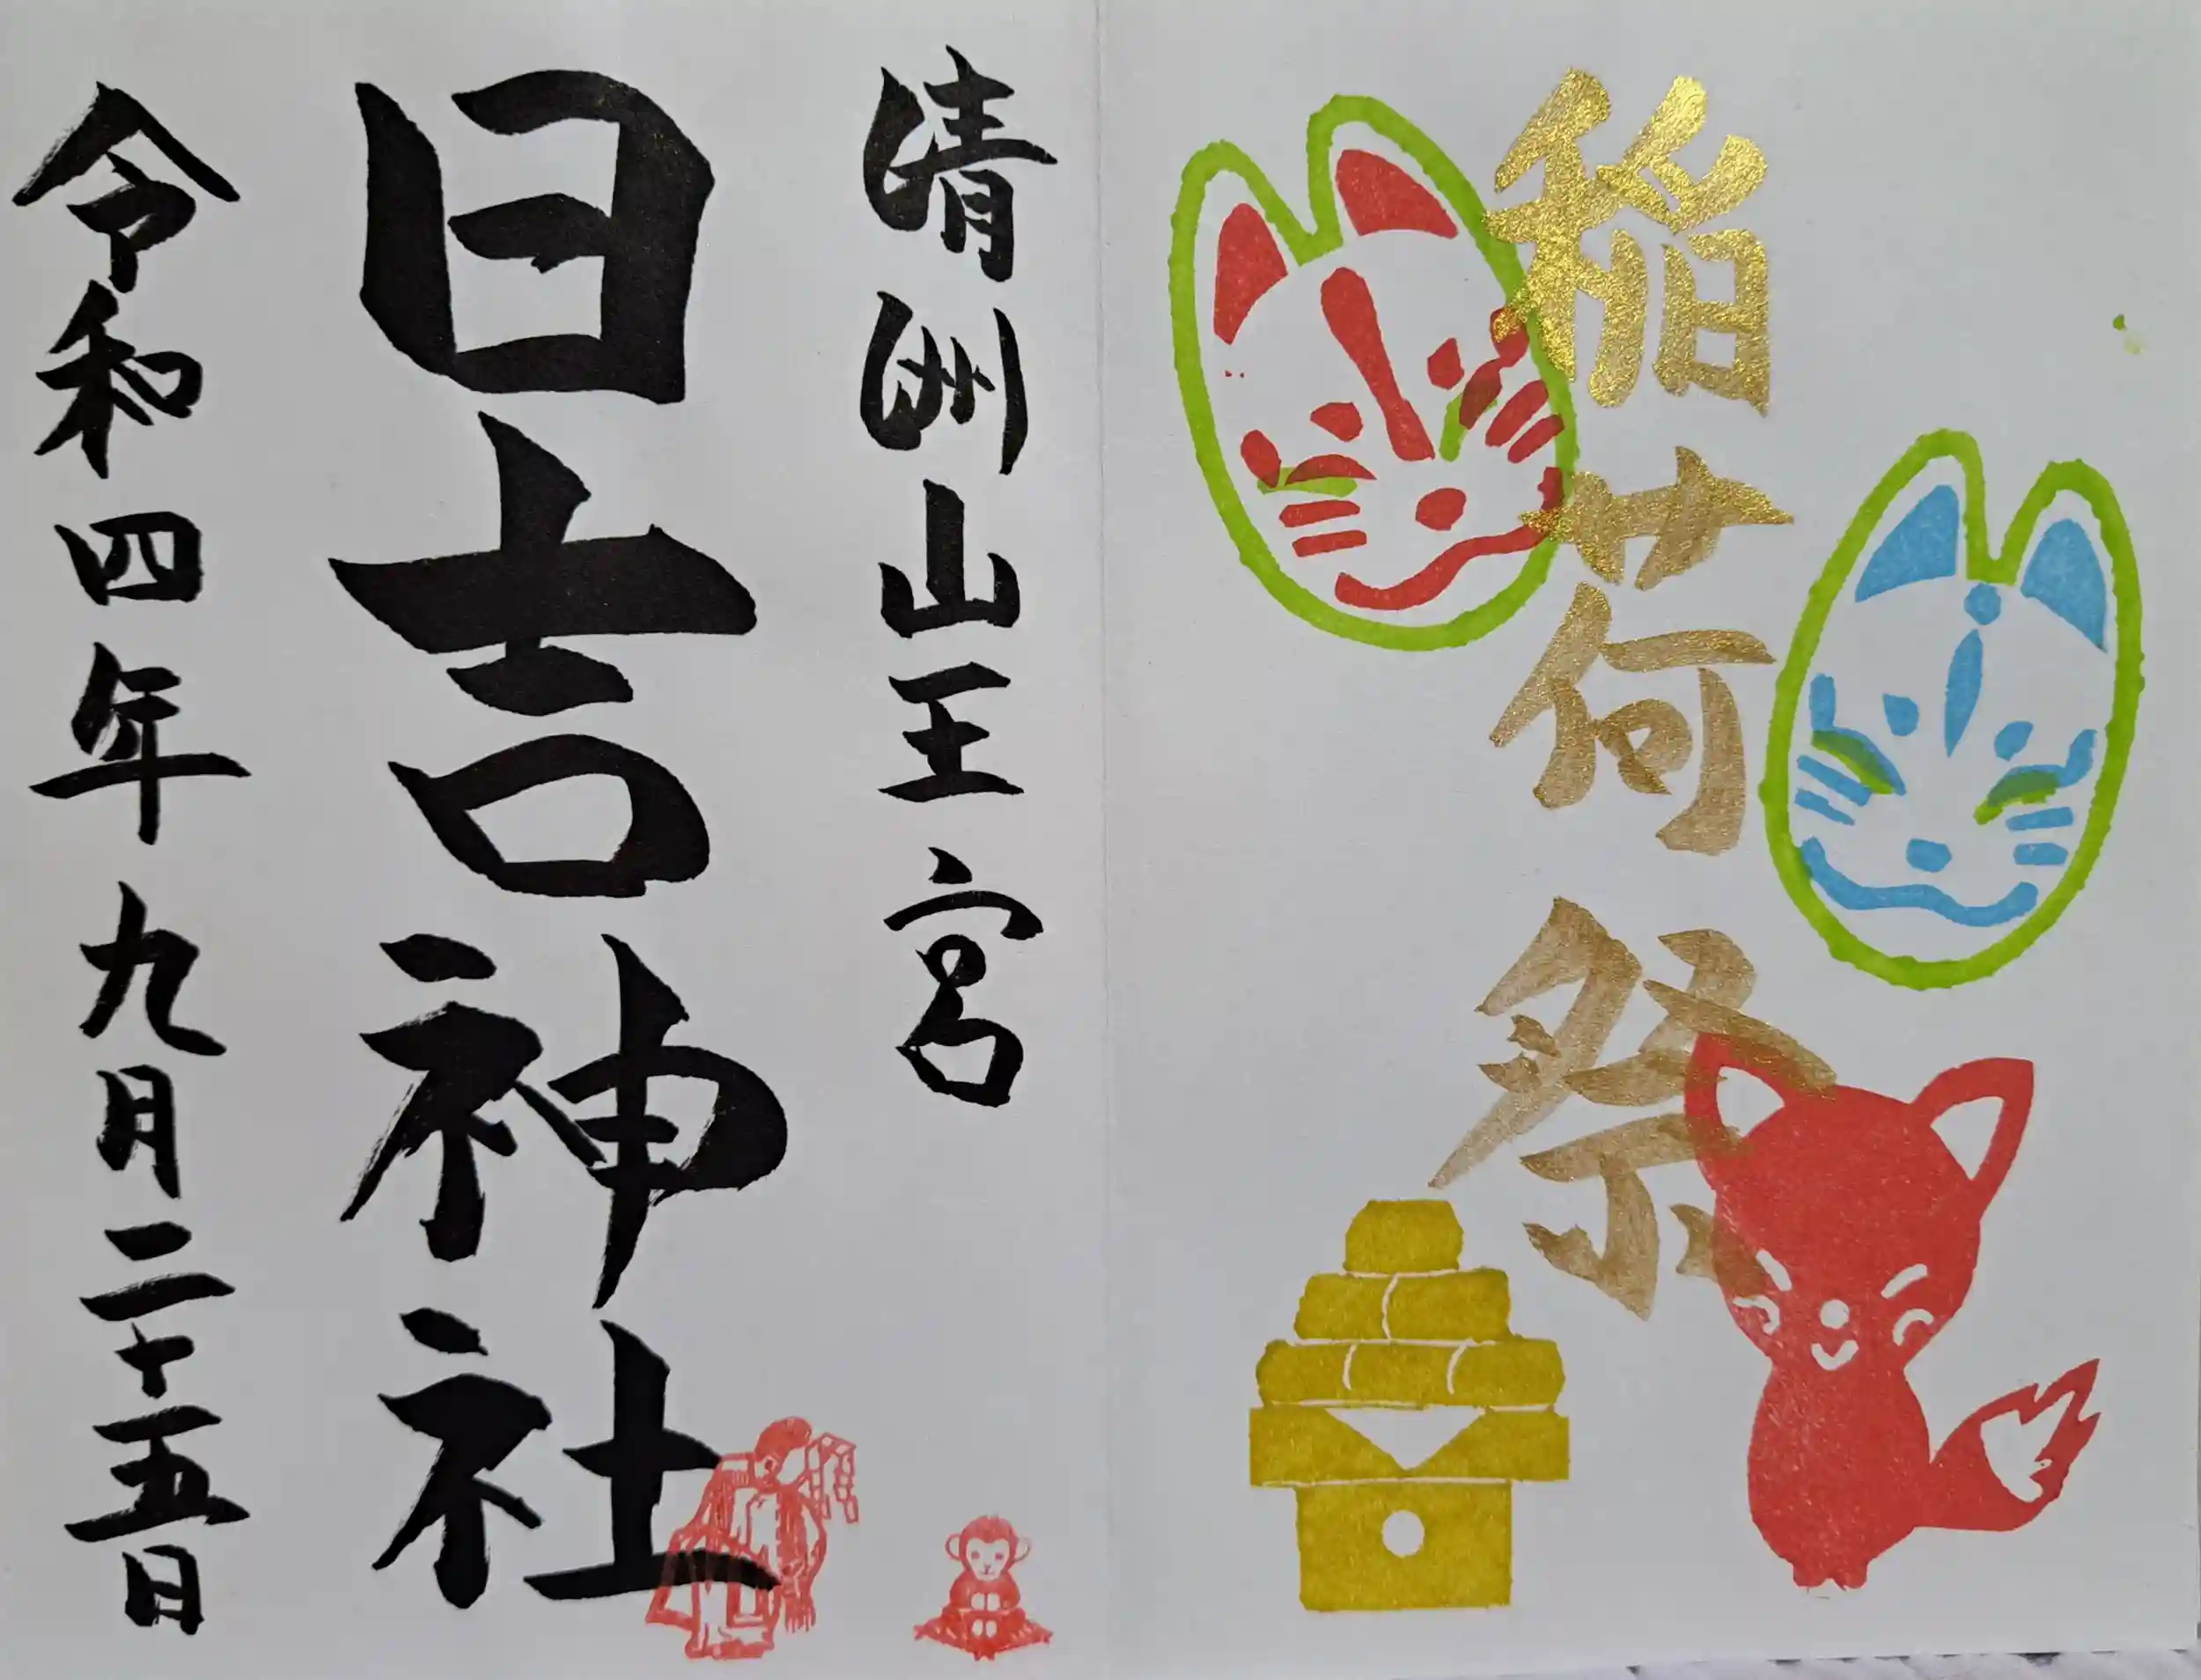 稲荷祭
清洲山王宮
日吉神社
令和四年九月二十五日